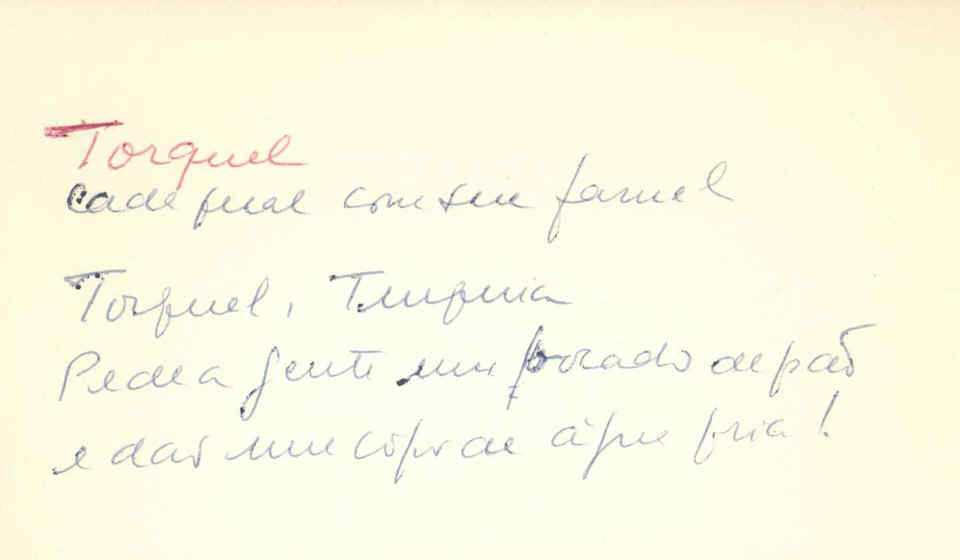 Torquel
cada qual com seu farnel
Torquel, Turquia
Pede a gente um bocado de pão
e dão um copo de água fria!